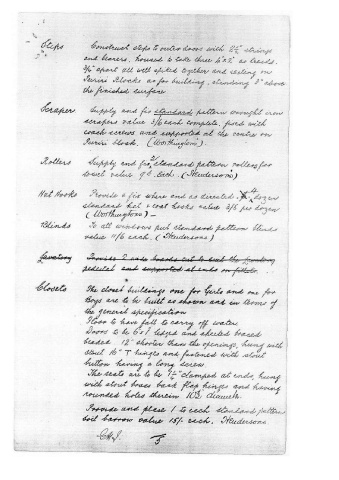 Steps Construct steps to outer doors with 2½" strings
and bearers, housed to take three 4"x2" as treads.
3/8" apart all well spiked together and resting on
Puriri Blocks as for building, standing 2" above
the finished surface
Scraper Supply and fix standard pattern wrought iron
scrapers value 3/6 each complete, fixed with
coach screws and supported at the centre on
Puriri block. (Worthington).
Rollers Supply and fix 2/ standard pattern rollers for
towel value 9d each. (Hendersons)
Hat Hooks Provide & fix where and as directed dozen
standard hat & coat hooks value 2/6 per dozen
(Worthingtons) —
Blinds To all windows put standard pattern blinds
value 11/6 each. (Hendersons)
Lavatory Provide 2 outs boards cut to suit the
pedestal and supported at ends on fillets.
Closets The closet buildings one for Girls and one for
Boys are to be built as shown and in terms of
the general specification
Floor to have fall to carry off water.
Doors to be 6 x 1 ledged and sheeted braced
beaded 12" shorter than the openings, hung with
steel 16" T hinges and fastened with stout
button having a long screw
The seats are to be 1½" clamped at ends, hung
with stout brass back flap hinges and having
rounded holes therein 10½ diameter.
Provide and place 1 to each standard pattern
soil barrow value 15/- each. Hendersons
5